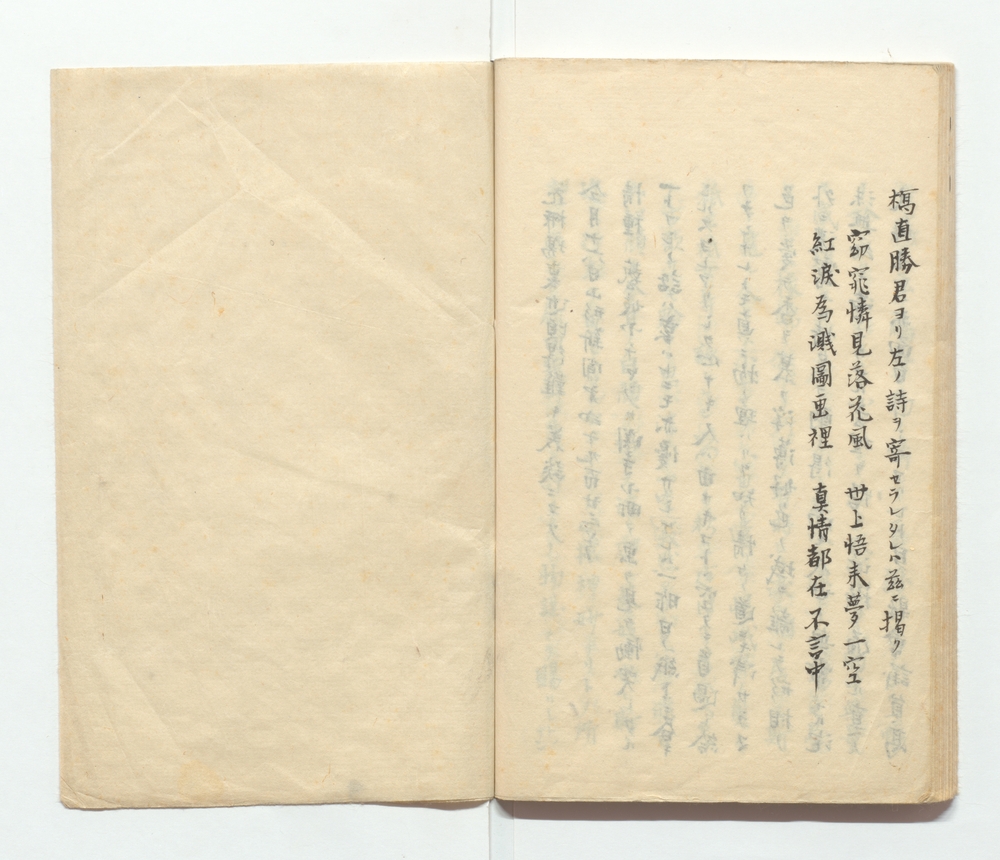 橋直勝君ヨリ左ノ詩ヲ寄セラレタレバ茲ニ掲ク
窈窕憐見落花風　世上悟来夢一空
紅涙為濺圖画裡　真情都在不言中